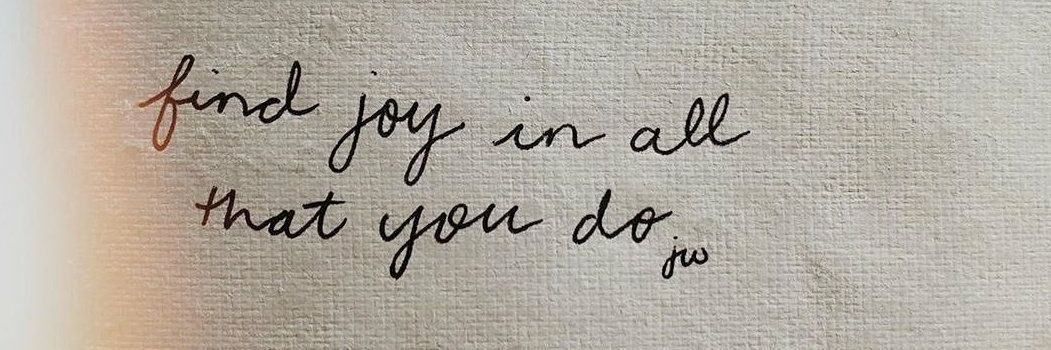 find joy in all
that you do.
jw